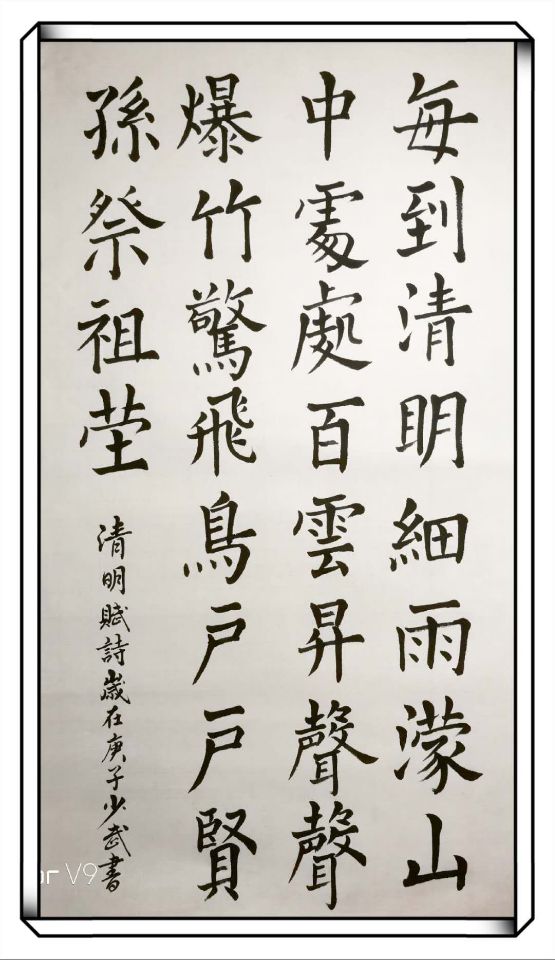 每到清明細雨濛山
中處處百雲昇聲聲
爆竹驚飛鳥戶戶賢
孫祭祖茔
清明賦詩歲在庚子少武書
V9